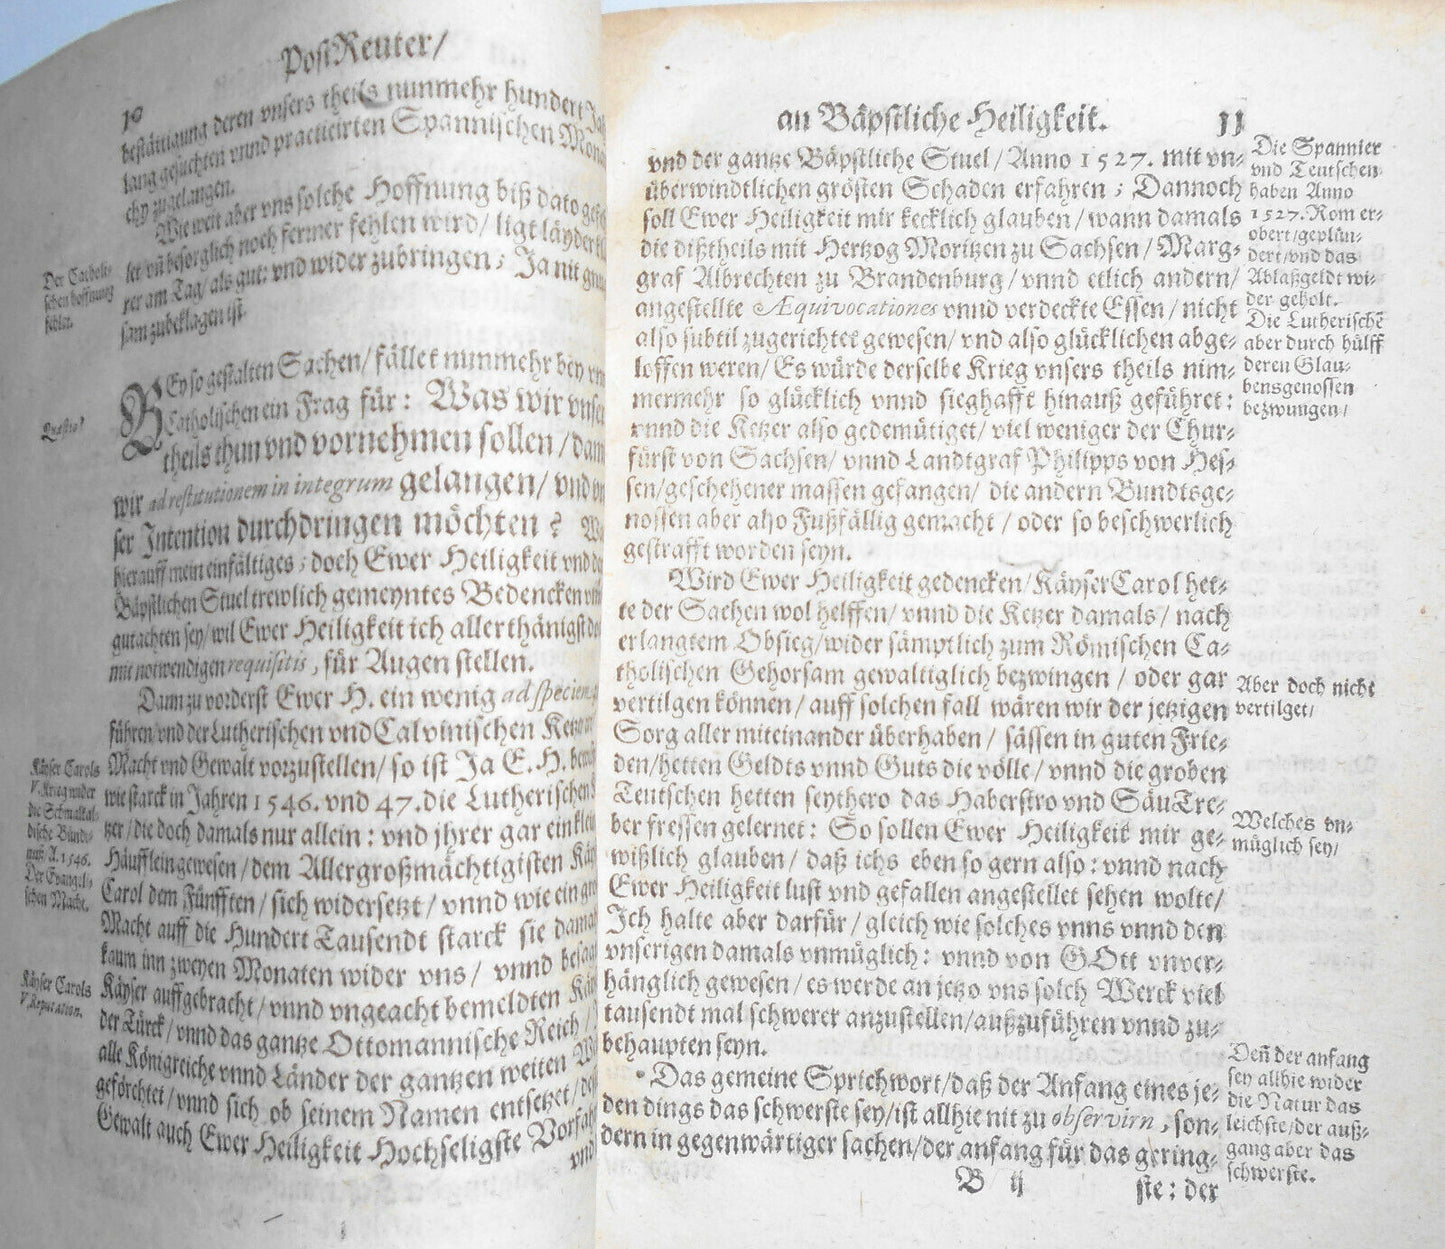 PostReuter/
10
bestättigung deren vnsers theils nunmehr hundert
lang gesuchten vnnd practicirten Spannischen
chy zugelangen.
Wie weit aber vns solche Hoffnung biß dato
let vñ besorglich noch ferner fehlen wird/ ligt
rer am Tag/ als gut: vnd wider zubringen; Ja nit
sam zubeklagen ist.
Der Catholi-
schen hoffnung
fehlet.
BEy so gestalten Sachen/ fället nunmehr bey
Catholischen ein Frag für: Was wir
theils thun vnd vornehmen sollen/
wir ad restitutionem in integrum gelangen/
ser Intention durchdringen möchten?
hierauff mein einfältiges; doch Ewer Heiligkeit vnd
Bäpstlichen Stuel trewlich gemeyntes Bedencken
gutachten sey/ wil Ewer Heiligkeit ich allerthänigst
mit notwendigen requisitis, für Augen stellen.
Quæstio?
Dann zu vorderst Ewer H. ein wenig ad
führen/ vnd der Lutherischen vnd Calvinischen
Macht vnd Gewalt vorzustellen/ so ist Ja E. H.
wie starck in Jahren 1546. vnd 47. die Lutherischen
tzer/ die doch damals nur allein: vnd jhrer gar ein
Häufflein gewesen/ dem Allergroßmächtigisten
Carol dem Fünfften/ sich widersetzt/ vnnd wie ein
Macht auff die Hundert Tausendt starck sie
kaum inn zweyen Monaten wider vns/ vnnd
Käyser auffgebracht/ vnnd vngeacht bemeldten
der Türck/ vnnd das gantze Ottomannische Reich/
alle Königreiche vnnd Länder der gantzen weiten
geförchtet/ vnnd sich ob seinem Namen entsetzet/
Gewalt auch Ewer Heiligkeit Hochseligste
vnd
Käyser Carols
V. Krieg wider
die Schmalkal-
dische Bunds-
A. 1546.
Der Evangeli-
schen Macht.
Käyser Carols
V. Reputation.
an Bäpstliche Heiligkeit. 11
vnd der gantze Bäpstliche Stuel/ Anno 1527. mit vn-
überwindtlichen grösten Schaden erfahren; Dannoch
soll Ewer Heiligkeit mir kecklich glauben/ wann damals
die dißtheils mit Hertzog Moritzen zu Sachsen/ Marg-
graf Albrechten zu Brandenburg/ vnnd etlich andern/
angestellte Æquivocationes vnnd verdeckte Essen/ nicht
also subtil zugerichtet gewesen/ vnd also glücklichen abge-
loffen weren/ Es würde derselbe Krieg vnsers theils nim-
mermehr so glücklich vnnd sieghafft hinauß geführet:
vnnd die Ketzer also gedemütiget/ viel weniger der Chur-
fürst von Sachsen/ vnnd Landtgraf Philipps von Hes-
sen/ geschehener massen gefangen/ die andern Bundtsge-
nossen aber also Fußfällig gemacht/ oder so beschwerlich
gestrafft worden seyn.
Wird Ewer Heiligkeit gedencken/ Käyser Carol het-
te der Sachen wol helffen/ vnnd die Ketzer damals/ nach
erlangtem Obsieg/ wider sämptlich zum Römischen Ca-
tholischen Gehorsam gewaltiglich bezwingen/ oder gar
vertilgen können/ auff solchen fall wären wir der jetzigen
Sorg aller miteinander überhaben/ sässen in guten Frie-
den/ hetten Geldts vnnd Guts die völle/ vnnd die groben
Teutschen hetten seythero das Haberstro vnd SäuTre-
ber fressen gelernet: So sollen Ewer Heiligkeit mir ge-
wißlich glauben/ daß ichs eben so gern also: vnnd nach
Ewer Heiligkeit lust vnd gefallen angestellet sehen wolte/
Ich halte aber darfür/ gleich wie solches vnns vnnd den
vnserigen damals vnmüglich: vnnd von GOtt vnver-
hänglich gewesen/ es werde an jetzo vns solch Werck viel
tausendt mal schwerer anzustellen/ außzuführen vnnd zu-
behaupten seyn.
Das gemeine Sprichwort/ daß der Anfang eines je-
den dings das schwerste sey/ ist allhie nit zu observirn, son-
dern in gegenwärtiger sachen/ der anfang für das gering-
B ij ste: der
Die Spannier
vnd Teutschen
haben Anno
1527. Rom er-
obert/ geplün-
dert/ vnd das
Ablaßgeldt wi-
der geholt.
Die Lutherischē
aber durch hülff
deren Glau-
bensgenossen
bezwungen/
Aber doch nicht
vertilget/
Welches vn-
müglich sey/
Deñ der anfang
sey allhie wider
die Natur das
leichste/ der auß-
gang aber das
schwerste.